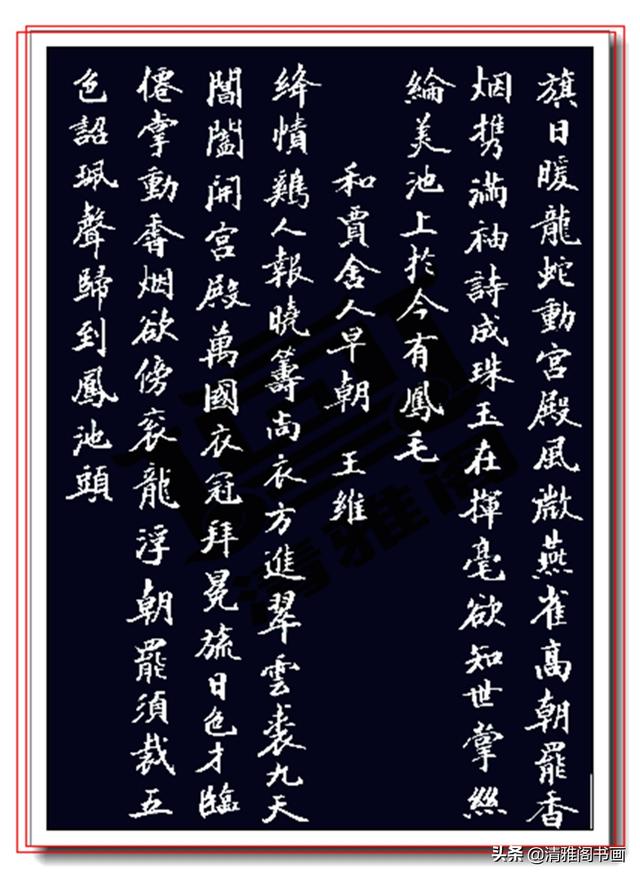 旗日暖龍蛇動宮殿風微燕雀高朝罷香
烟携滿袖詩成珠玉在揮毫欲知世掌絲
綸美池上於今有鳳毛
和賈舍人早朝 王維
絳幘雞人報曉籌尚衣方進翠雲裘九天
閶闔開宮殿萬國衣冠拜冕旒日色才臨
僊掌動香烟欲傍衮龍浮朝罷須裁五
色詔珮聲歸到鳳池頭
清雅阁
头条 @清雅阁书画